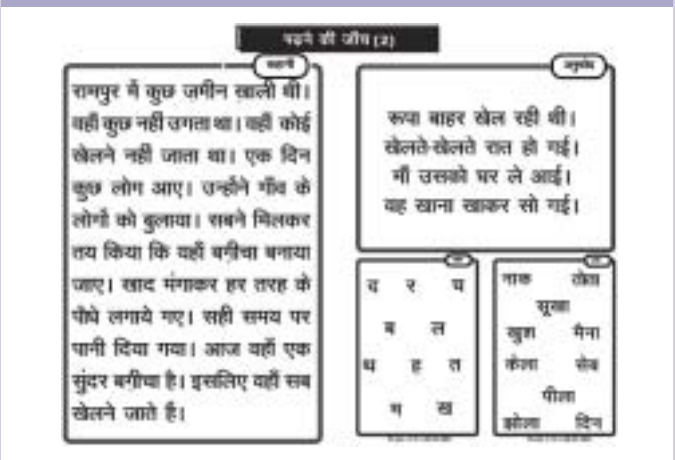 पढ़ने की जाँच (2)
कहानी
रामपुर में कुछ ज़मीन ख़ाली थी।
वहाँ कुछ नहीं उगता था। वहाँ कोई
खेलने नहीं जाता था। एक दिन
कुछ लोग आए। उन्होंने गाँव के
लोगों को बुलाया। सबने मिलकर
तय किया कि यहाँ बग़ीचा बनाया
जाए। खाद मंगाकर हर तरह के
पौधे लगाये गए। सही समय पर
पानी दिया गया। आज वहाँ एक
सुंदर बगीचा है। इसलिए वहाँ सब
खेलने जाते हैं।
अनुच्छेद
रूपा बाहर खेल रही थी।
खेलते-खेलते रात हो गई।
माँ उसको घर ले आई।
वह खाना खाकर सो गई।
द र
ब ल
ह त
ख
नाक तोता
सूखा
खुश मैना
केला सेब
पीला
झोला दिन